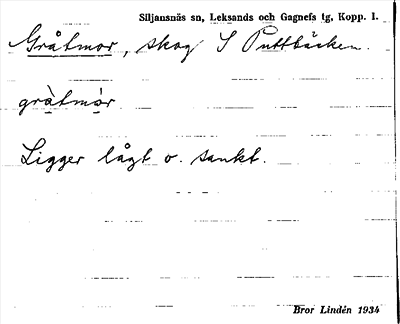 Siljansnäs sn, Leksands och Gagnefs tg, Kopp. l.
Gråtmor, skog S Puttbäcken.
gràtmór
Ligger lågt o. sankt.
Bror Lindén 1934